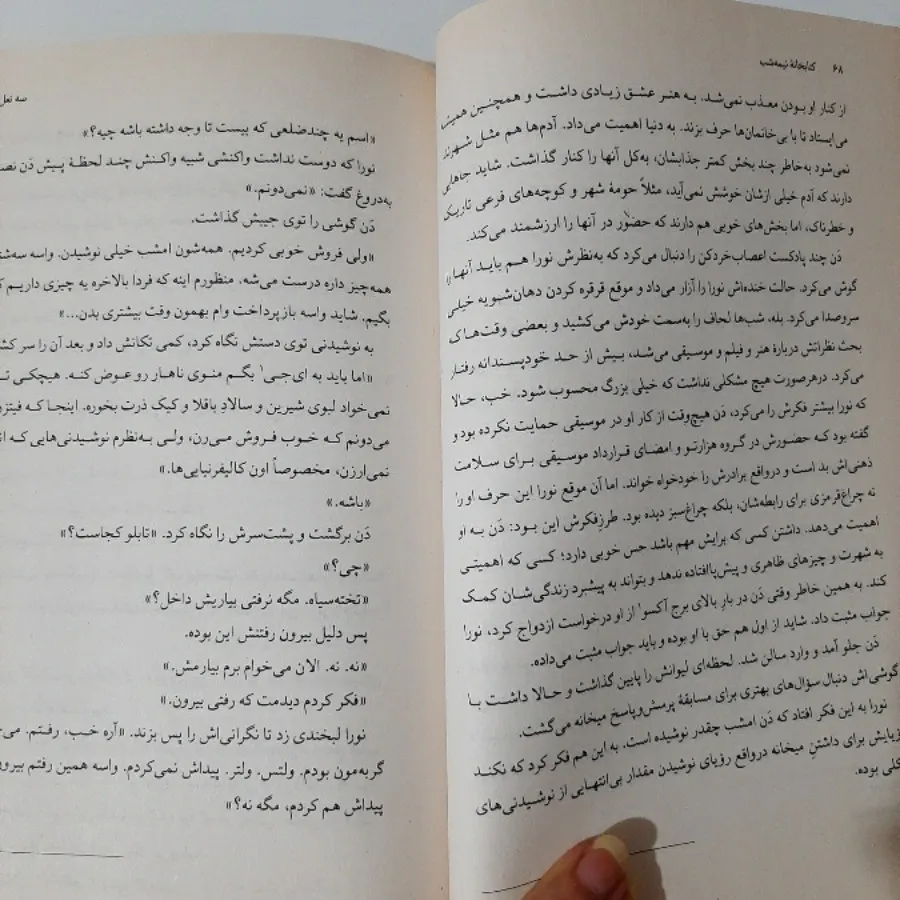 ۶۸ کتابخانهٔ نیمه‌شب
از کنار او بودن معذب نمی‌شد. به هنر عشق زیادی داشت و همچنین همیشه
می‌ایستاد تا با بی‌خانمان‌ها حرف بزند. به دنیا اهمیت می‌داد. آدم‌ها هم مثل شهرند.
نمی‌شود به‌خاطر چند بخش کمتر جذابشان، به‌کل آنها را کنار گذاشت. شاید جاهایی
دارند که آدم خیلی ازشان خوشش نمی‌آید، مثلاً حومهٔ شهر و کوچه‌های فرعی تاریک
و خطرناک، اما بخش‌های خوبی هم دارند که حضور در آنها را ارزشمند می‌کند.
دَن چند پادکست اعصاب‌خردکن را دنبال می‌کرد که به‌نظرش نورا هم باید آنها را
گوش می‌کرد. حالت خنده‌اش نورا را آزار می‌داد و موقع قرقره کردن دهان‌شویه خیلی
سروصدا می‌کرد. بله، شب‌ها لحاف را به‌سمت خودش می‌کشید و بعضی وقت‌ها که
بحث نظراتش دربارهٔ هنر و فیلم و موسیقی می‌شد، بیش از حد خودپسندانه رفتار
می‌کرد. درهرصورت هیچ مشکلی نداشت که خیلی بزرگ محسوب شود. خب، حالا
که نورا بیشتر فکرش را می‌کرد، دَن هیچ‌وقت از کار او در موسیقی حمایت نکرده بود و
گفته بود که حضورش در گروه هزارتو و امضای قرارداد موسیقی برای سلامت
ذهنی‌اش بد است و درواقع برادرش را خودخواه خواند. اما آن موقع نورا این حرف او را
نه چراغ‌قرمزی برای رابطه‌شان، بلکه چراغ‌سبز دیده بود. طرزفکرش این بود: دَن به او
اهمیت می‌دهد. داشتن کسی که برایش مهم باشد حس خوبی دارد؛ کسی که اهمیتی
به شهرت و چیزهای ظاهری و پیش‌پاافتاده ندهد و بتواند به پیشبرد زندگی‌شان کمک
کند. به همین خاطر وقتی دَن در بارِ بالای برج آکسو۱ از او درخواست ازدواج کرد، نورا
جواب مثبت داد. شاید از اول هم حق با او بوده و باید جواب مثبت می‌داده.
دَن جلو آمد و وارد سالن شد. لحظه‌ای لیوانش را پایین گذاشت و حالا داشت با
گوشی‌اش دنبال سؤال‌های بهتری برای مسابقهٔ پرسش‌وپاسخ میخانه می‌گشت.
نورا به این فکر افتاد که دَن امشب چقدر نوشیده است. به این هم فکر کرد که نکند
برای داشتنِ میخانه درواقع رؤیای نوشیدن مقدار بی‌انتهایی از نوشیدنی‌های
بوده.
سه نعل
«اسم یه چندضلعی که بیست تا وجه داشته باشه چیه؟»
نورا که دوست نداشت واکنشی شبیه واکنش چند لحظهٔ پیش دَن
به‌دروغ گفت: «نمی‌دونم.»
دَن گوشی را توی جیبش گذاشت.
«ولی فروش خوبی کردیم. همه‌شون امشب خیلی نوشیدن. واسه
همه‌چیز داره درست می‌شه. منظورم اینه که فردا بالاخره یه چیزی داریم
بگیم. شاید واسه بازپرداخت وام بهمون وقت بیشتری بدن...»
به نوشیدنی توی دستش نگاه کرد، کمی تکانش داد و بعد آن را سر
«اما باید به ای‌جی۱ بگم منوی ناهار رو عوض کنه. هیچکی
نمی‌خواد لبوی شیرین و سالادِ باقلا و کیک ذرت بخوره. اینجا که
می‌دونم که خوب فروش می‌رن، ولی به‌نظرم نوشیدنی‌هایی که
نمی‌ارزن، مخصوصاً اون کالیفرنیایی‌ها.»
«باشه.»
دَن برگشت و پشت‌سرش را نگاه کرد. «تابلو کجاست؟»
«چی؟»
«تخته‌سیاه. مگه نرفتی بیاریش داخل؟»
پس دلیل بیرون رفتنش این بوده.
«نه. نه. الان می‌خوام برم بیارمش.»
«فکر کردم دیدمت که رفتی بیرون.»
نورا لبخندی زد تا نگرانی‌اش را پس بزند. «آره خب، رفتم.
گربه‌مون بودم. ولتس. ولتر. پیداش نمی‌کردم. واسه همین رفتم بیرون
پیداش هم کردم، مگه نه؟»